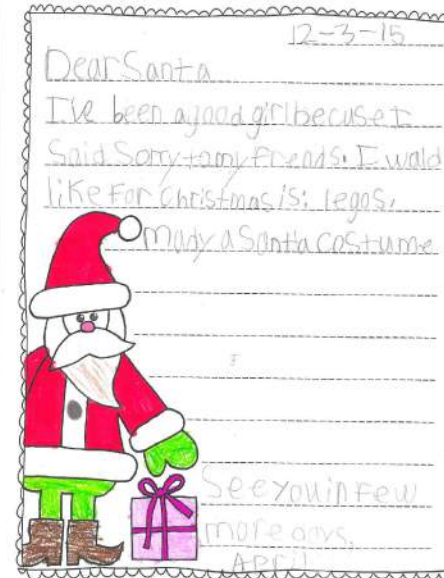 12-3-15
Dear Santa
I've been a good girl becuse I
Said Sorry to my Freads. I wald
like For Christmas is: legos,
mady a Santa costume
See you in Few
more days,
April